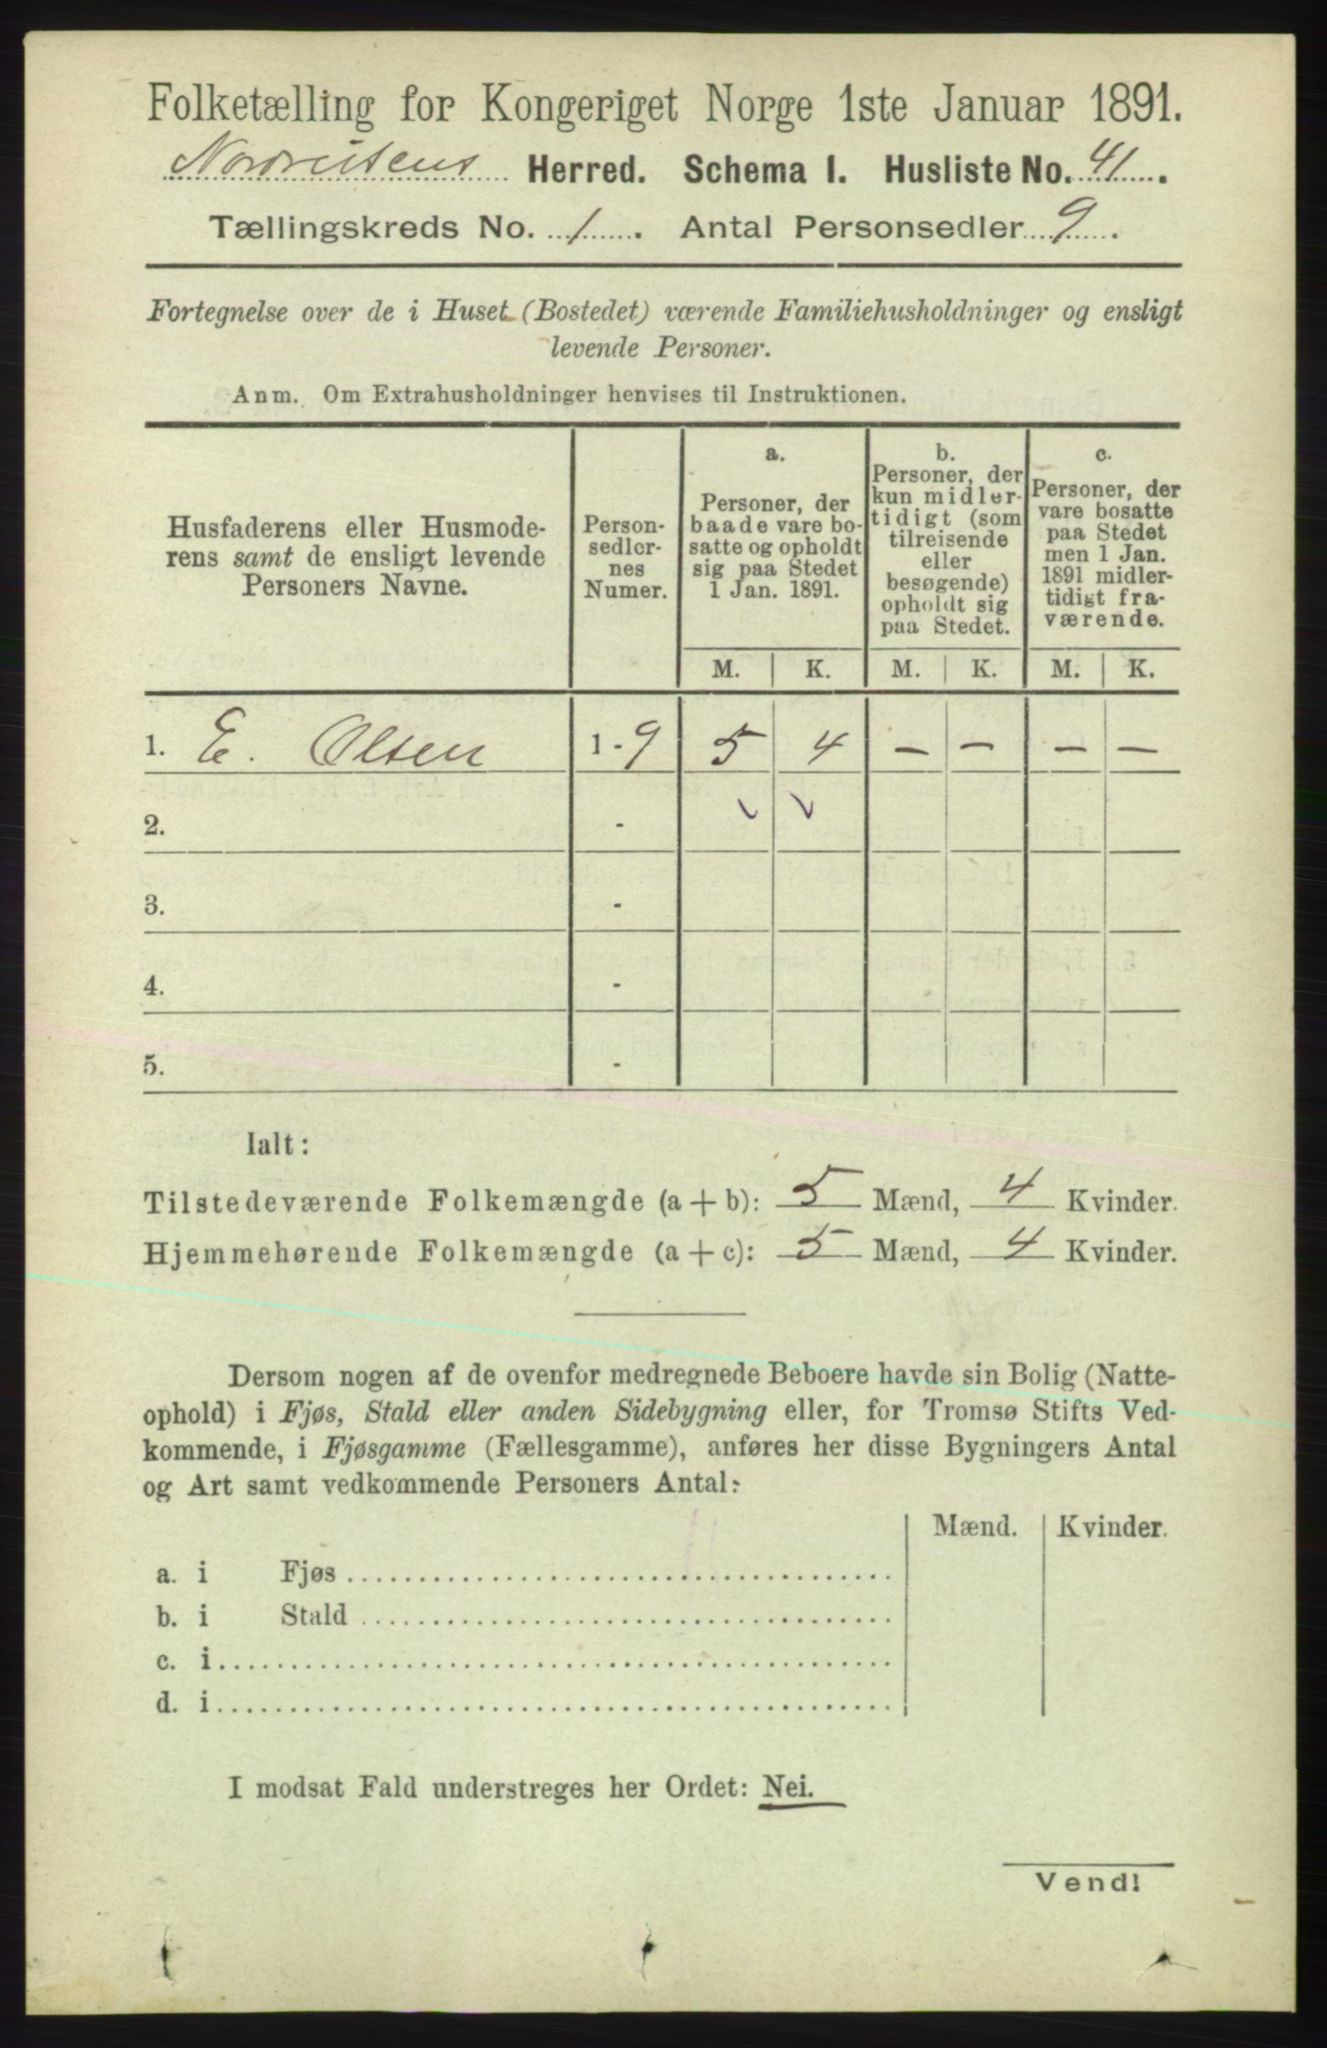 Folketælling for Kongeriget Norge 1ste Januar 1891.
Nordreisens Herred. Schema I. Husliste No. 41.
Tællingskreds No. 1. Antal Personsedler 9.
Fortegnelse over de i Huset (Bostedet) værende Familiehusholdninger og ensligt
levende Personer.
Anm. Om Extrahusholdninger henvises til Instruktionen.
Husfaderens eller Husmode-
rens samt de ensligt levende
Personers Navne.
Person-
sedler-
nes
Numer.
a.
Personer, der
baade vare bo-
satte og opholdt
sig paa Stedet
1 Jan. 1891.
b.
Personer, der
kun midler-
tidigt (som
tilreisende
eller
besøgende)
opholdt sig
paa Stedet.
c.
Personer, der
vare bosatte
paa Stedet
men 1 Jan.
1891 midler-
tidigt fra-
værende.
M. K. M. K. M. K.
1. E. Olsen 1 - 9 5 4 - - - -
2. -
3. -
4. -
5. -
Ialt:
Tilstedeværende Folkemængde (a + b): 5 Mænd, 4 Kvinder.
Hjemmehørende Folkemængde (a + c): 5 Mænd, 4 Kvinder.
Dersom nogen af de ovenfor medregnede Beboere havde sin Bolig (Natte-
ophold) i Fjøs, Stald eller anden Sidebygning eller, for Tromsø Stifts Ved-
kommende, i Fjøsgamme (Fællesgamme), anføres her disse Bygningers Antal
og Art samt vedkommende Personers Antal:
Mænd. Kvinder.
a. i Fjøs
b. i Stald
c. i
d. i
I modsat Fald understreges her Ordet: Nei.
Vend!